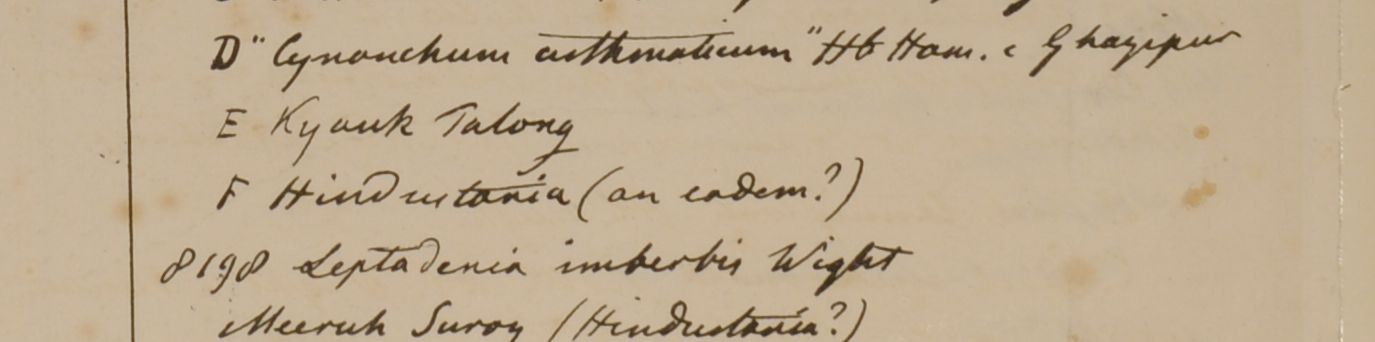 D "Cynanchum asthmaticum" Hb Ham. e Ghazipur
E Kyouk Talong
F Hindustania (an eadem?)
8198 Leptadenia imberbis Wight
Meeruh Suroy (Hindustania?)